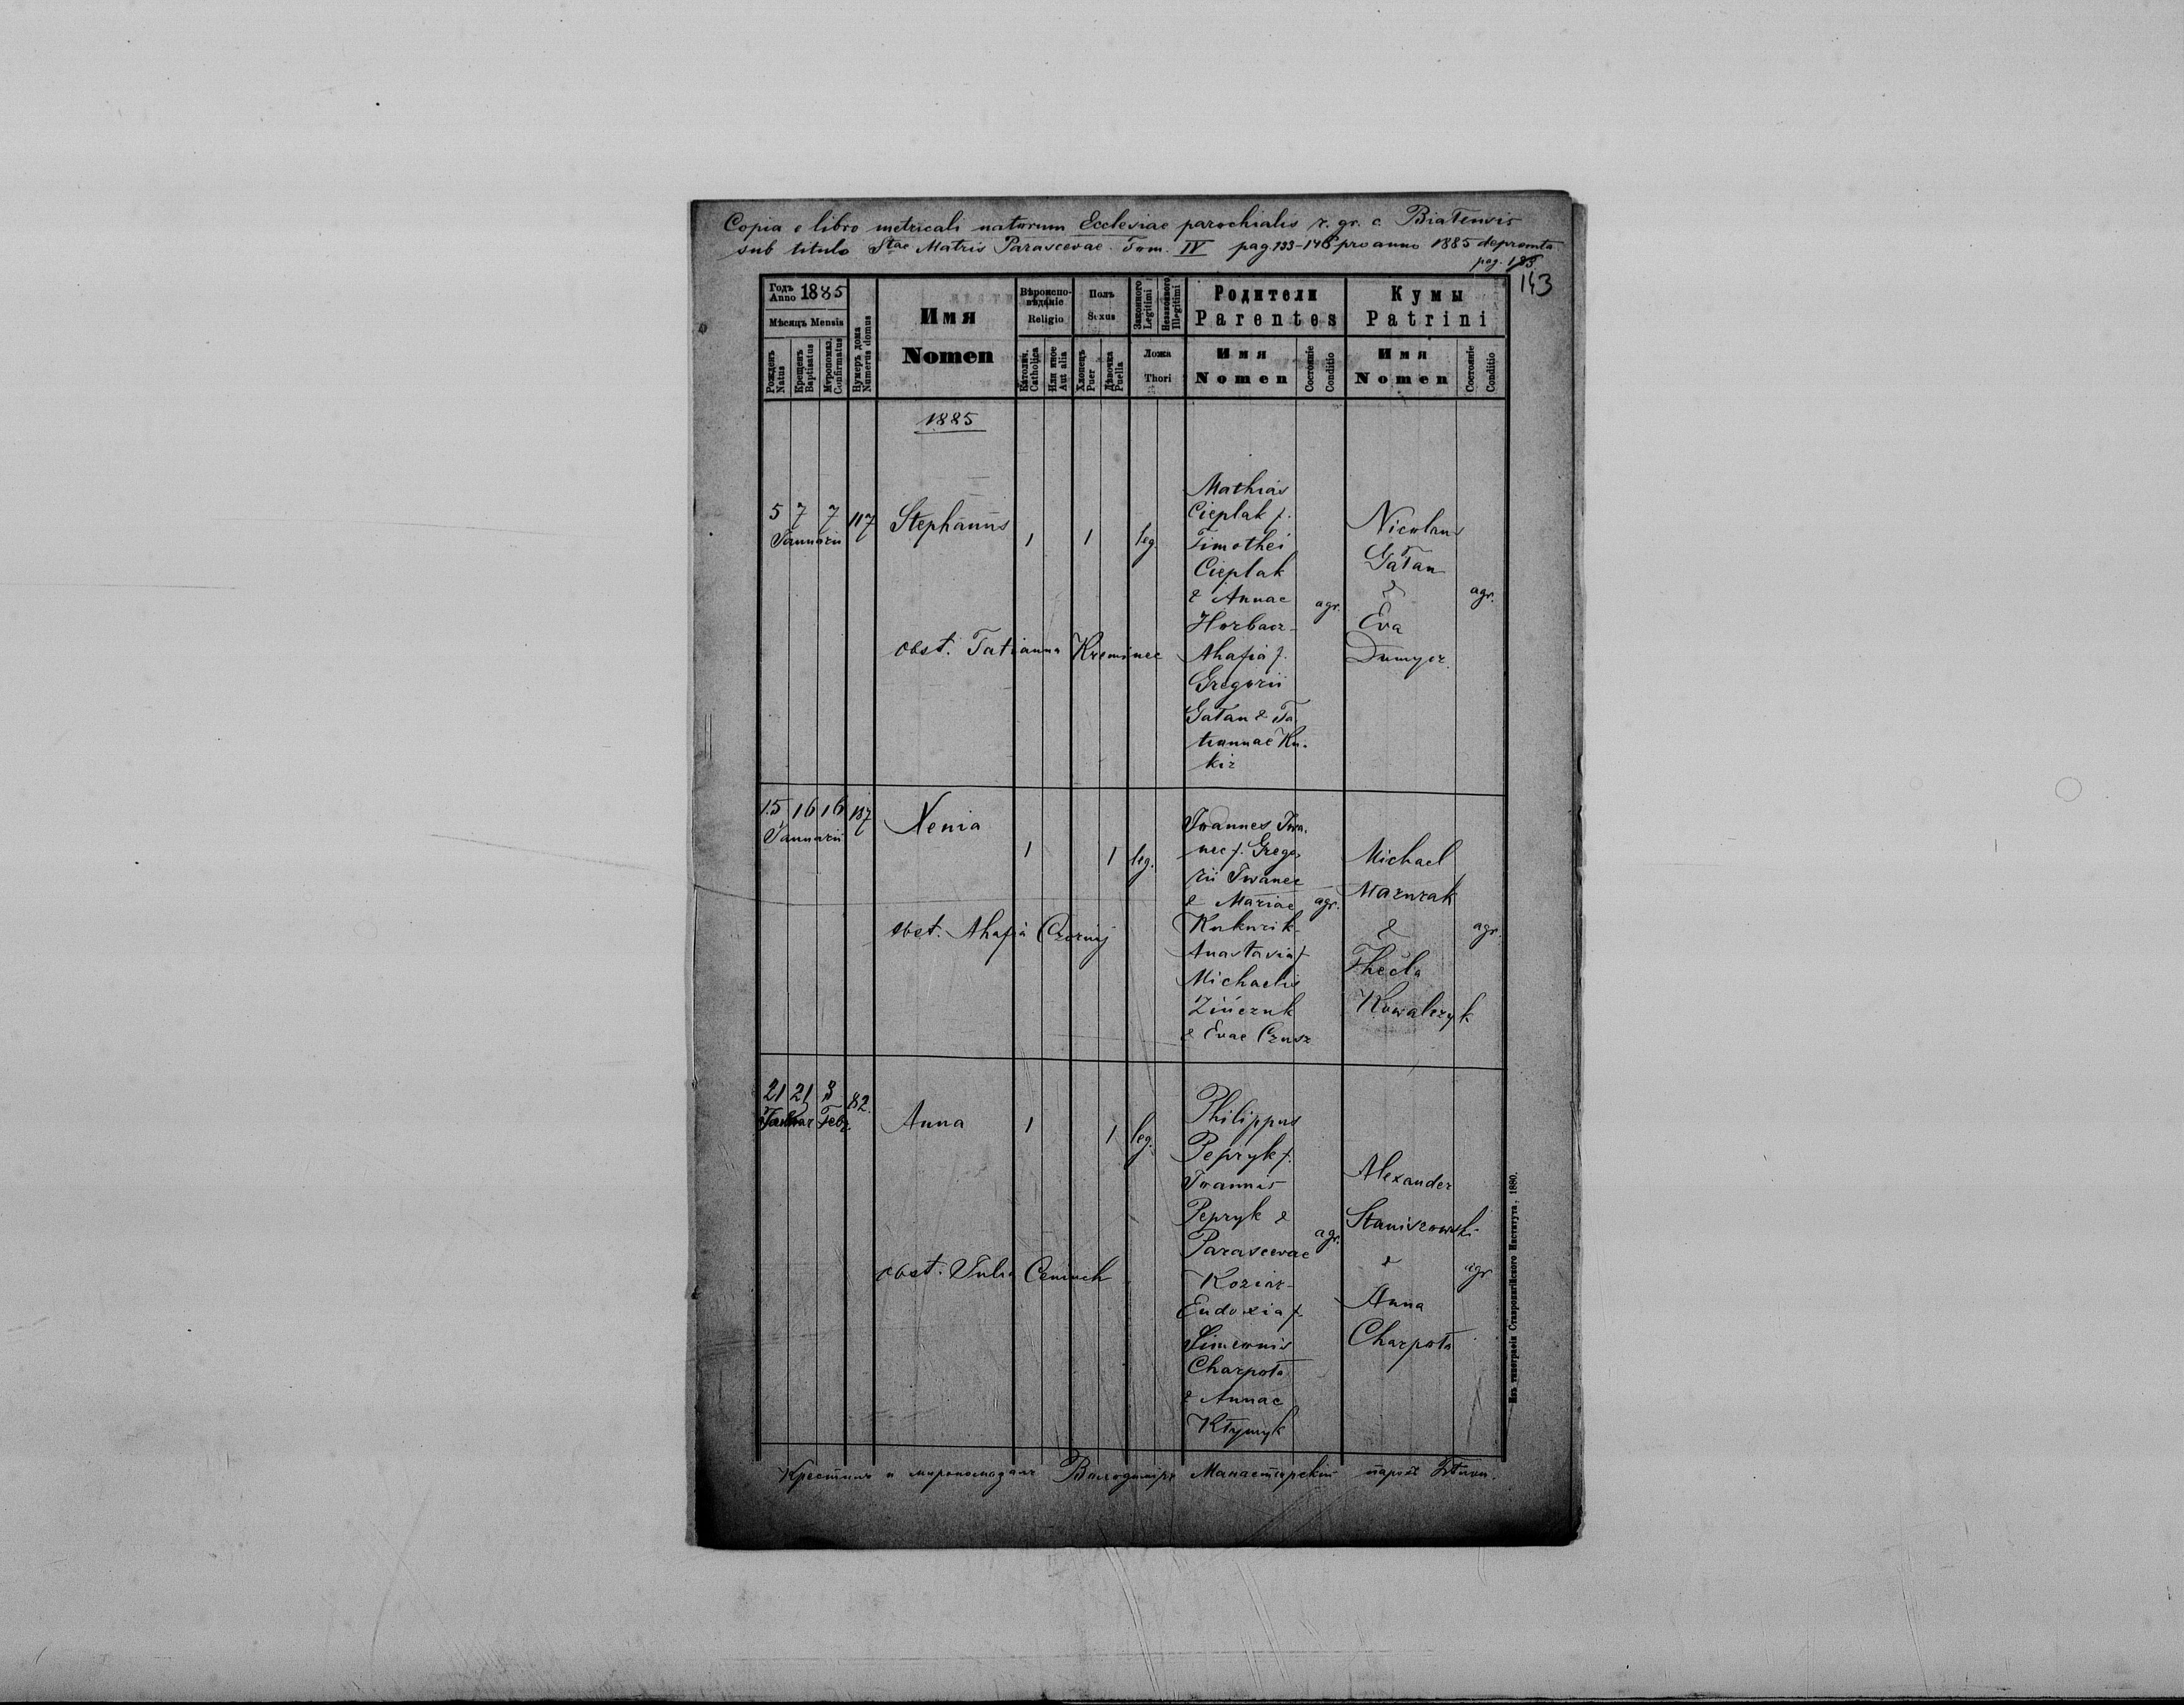 Copia e libro metricali natorum Ecclesiae parochialis r. gr. c. Białensis
sub titulo Stae Matris Parascevae. Tom. IV pag. 133-146 pro anno 1885 depromta
pag. 133.
143
Годъ Anno 1885
Мѣсяцъ Mensis
Рожденъ Natus
Крещенъ Baptisatus
Мѵропомаз. Confirmatus
Нумеръ дома Numerus domus
Имя
Nomen
Вѣроиспо-
вѣданіе
Religio
Католич. Catholica
Или иное Aut alia
Полъ
Sexus
Хлопецъ Puer
Дѣвочка Puella
Законного Legitimi
Незаконного Illegitimi
Ложа
Thori
Родители
Parentes
Имя
Nomen
Состояніе
Conditio
Кумы
Patrini
Имя
Nomen
Состояніе
Conditio
1885
5 7 7 117
Januarii
Stephanus
1 1 leg.
obst. Tatianna Kreminec
Mathias
Cieplak f.
Timothei
Cieplak
& Annae
Horbacz-
Ahafia f.
Gregorii
Gałan & Ta
tiannae Ku-
kiz
agr.
Nicolaus
Gałan
&
Eva
agr.
15 16 16 187
Januarii
Xenia
1 1 leg.
obst. Ahafia Czornij
Joannes Iwa.
nec f. Grego
rii Iwanec
& Mariae
Kukurik-
Anastasia f.
Michaelis
Zińczuk
& Evae Czusz
agr.
Michael
Mazurak
&
Thecla
Kowalczyk
agr.
21 21 3 82.
Januar Febr.
Anna
1 1 leg.
obst. Julia
Philippus
Pepryk f.
Joannis
Pepryk &
Parascevae
Koziar-
Eudoxia f.
Simeonis
Charpota
& Annae
Kłymyk
agr.
Alexander
Staniszewski
&
Anna
Charpota
agr
Изъ типографіи Ставропигійского Института, 1880.
Крестилъ и миропомазалъ Володимиръ Манастырскій парох